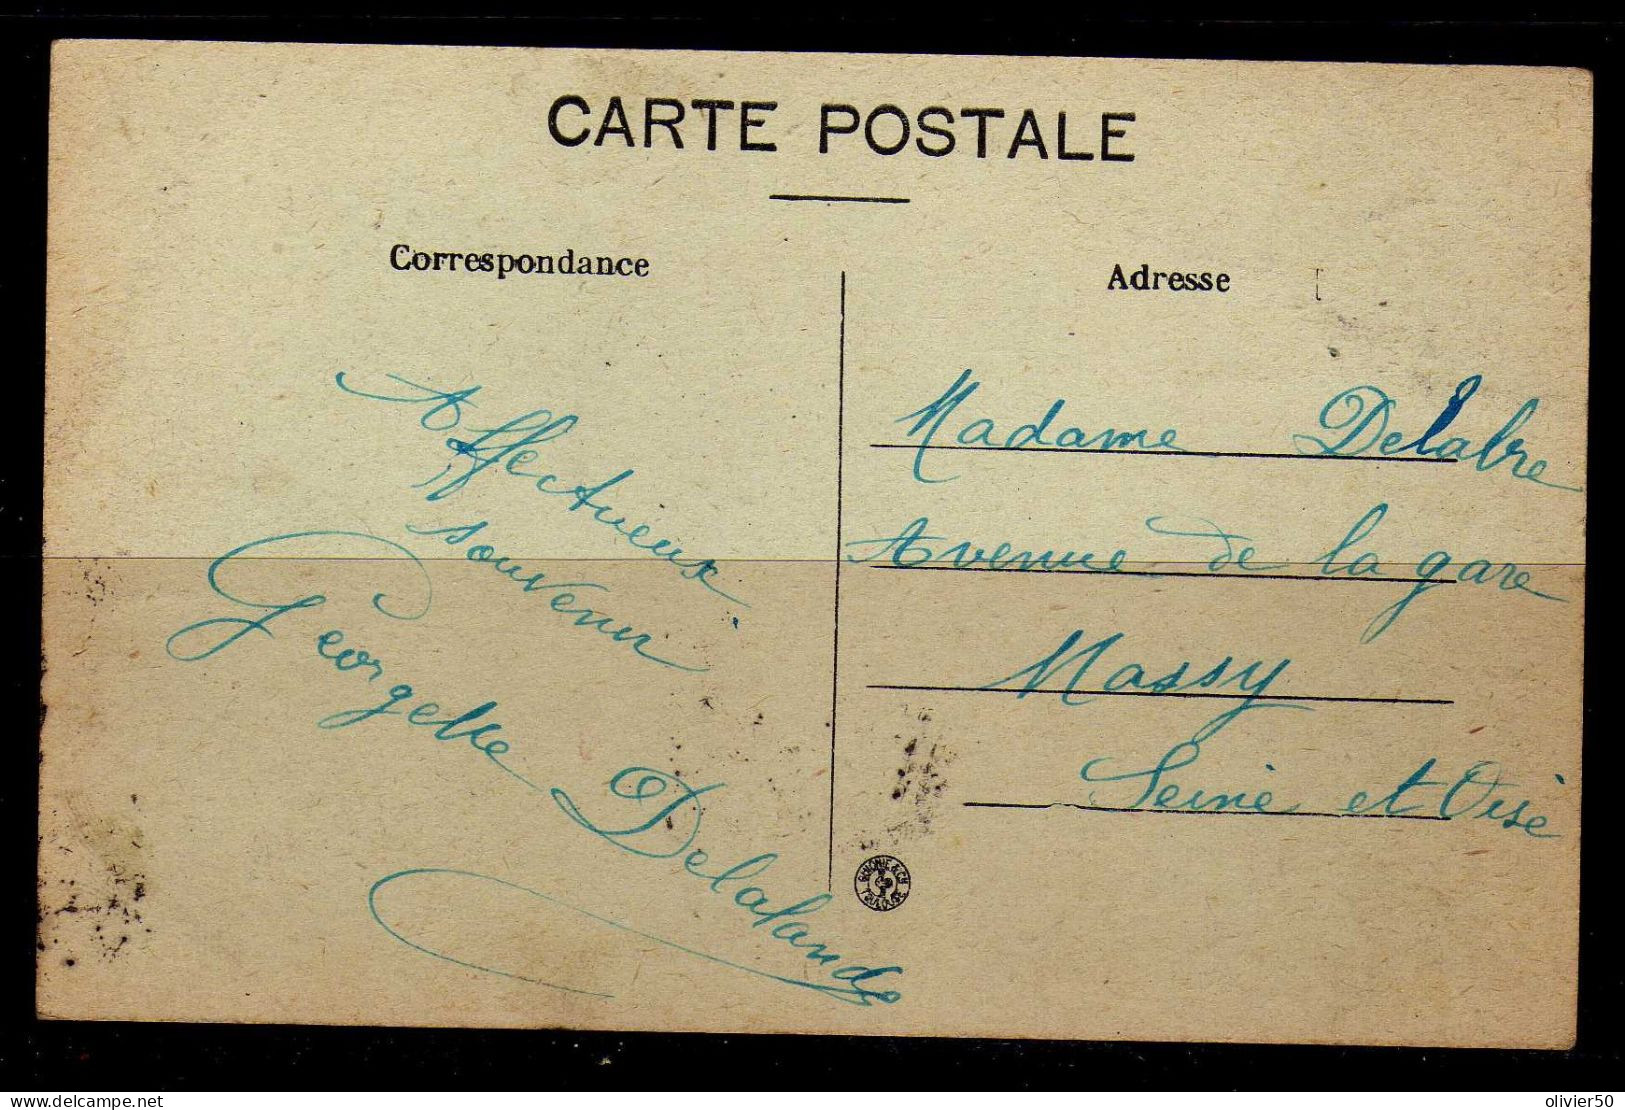 CARTE POSTALE
Correspondance
Affectueux
souvenir
Georgette Delalande
Adresse
Madame Delabre
Avenue de la gare
Massy
Seine et Oise
TOULOUSE
www.delcampe.net
olivier50